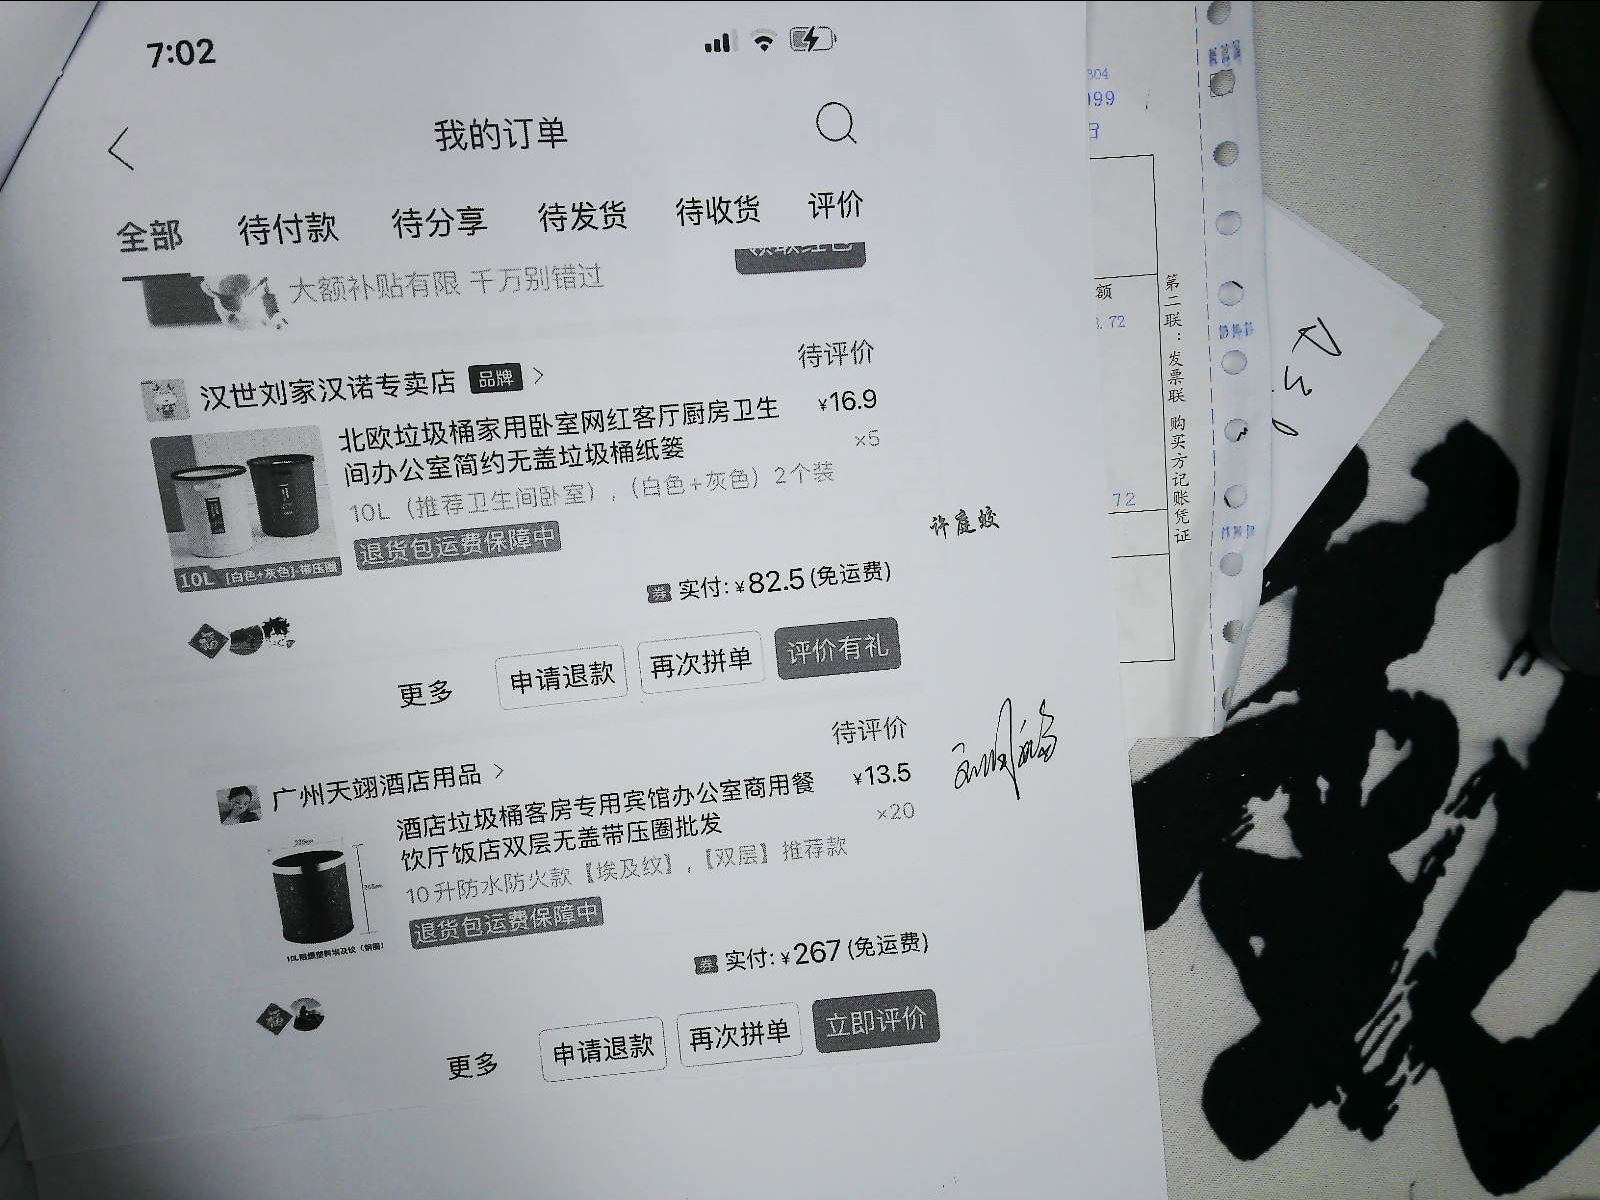 7:02
我的订单
全部 待付款 待分享 待发货 待收货 评价
大额补贴有限 千万别错过
汉世刘家汉诺专卖店 品牌 >
待评价
北欧垃圾桶家用卧室网红客厅厨房卫生
间办公室简约无盖垃圾桶纸篓
¥16.9
×5
10L（推荐卫生间卧室），（白色+灰色）2个装
退货包运费保障中
10L [白色+灰色]-带压圈
券 实付:¥82.5(免运费)
更多 申请退款 再次拼单 评价有礼
许庭蛟
广州天翊酒店用品 >
待评价
酒店垃圾桶客房专用宾馆办公室商用餐
饮厅饭店双层无盖带压圈批发
¥13.5
×20
10升防水防火款【埃及纹】,【双层】推荐款
退货包运费保障中
券 实付:¥267(免运费)
更多 申请退款 再次拼单 立即评价
304
099
额
3.72
72
第二联：发票联 购买方记账凭证